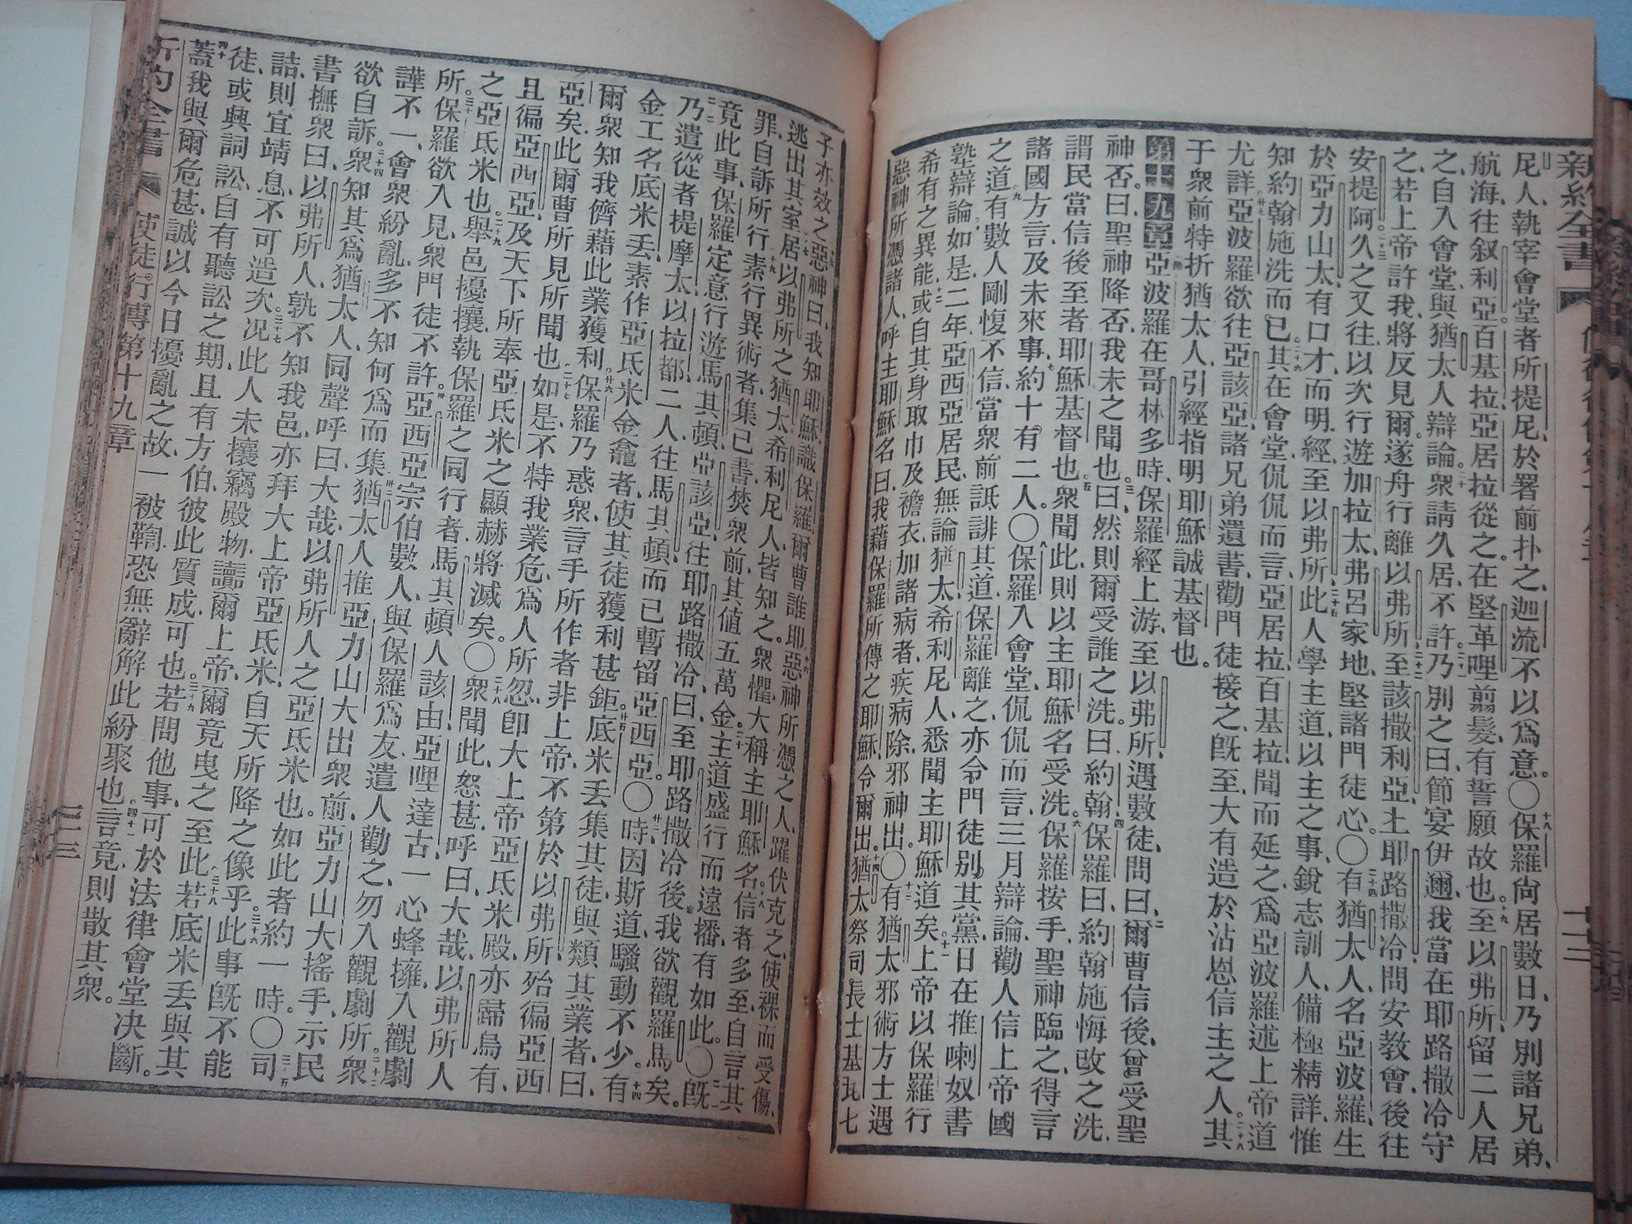 新約全書
尼人執宰會堂者所提尼於署前扑之迦流不以爲意〇十八保羅尙居數日乃別諸兄弟
航海往叙利亞百基拉亞居拉從之在堅革哩翦髮有誓願故也十九至以弗所留二人居
之自入會堂與猶太人辯論二十衆請久居不許二一乃別之曰節宴伊邇我當在耶路撒冷守
之若上帝許我將反見爾遂舟行離以弗所二二至該撒利亞上耶路撒冷問安教會後往
安提阿二三久之又往以次行遊加拉太弗呂家地堅諸門徒心〇二十四有猶太人名亞波羅生
於亞力山太有口才而明經至以弗所二十五此人學主道以主之事銳志訓人備極精詳惟
知約翰施洗而已二十六其在會堂侃侃而言亞居拉百基拉聞而延之爲亞波羅述上帝道
尤詳二七亞波羅欲往亞該亞諸兄弟遺書勸門徒接之旣至大有造於沾恩信主之人二十八其
于衆前特折猶太人引經指明耶穌誠基督也
第十九章一亞波羅在哥林多時保羅經上游至以弗所遇數徒二問曰爾曹信後曾受聖
神否曰聖神降否我未之聞也三曰然則爾受誰之洗曰約翰四保羅曰約翰施悔改之洗
謂民當信後至者耶穌基督也五衆聞此則以主耶穌名受洗六保羅按手聖神臨之得言
諸國方言及未來事七約十有二人〇八保羅入會堂侃侃而言三月辯論勸人信上帝國
之道九有數人剛愎不信當衆前詆誹其道保羅離之亦令門徒別其黨日在推喇奴書
塾辯論十如是二年亞西亞居民無論猶太希利尼人悉聞主耶穌道矣十一上帝以保羅行
希有之異能十二或自其身取巾及襜衣加諸病者疾病除邪神出〇十三有猶太邪術方士遇
惡神所憑諸人呼主耶穌名曰我藉保羅所傳之耶穌令爾出十四猶太祭司長士基瓦七
子亦效之十五惡神曰我知耶穌識保羅爾曹誰耶十六惡神所憑之人躍伏克之使裸而受傷
逃出其室十七居以弗所之猶太希利尼人皆知之衆懼大稱主耶穌名十八信者多至自言其
罪自訴所行十九素行異術者集已書焚衆前其値五萬金二十主道盛行而遠播有如此〇二一旣
竟此事保羅定意行遊馬其頓亞該亞往耶路撒冷曰至耶路撒冷後我欲觀羅馬矣
二二乃遣從者提摩太以拉都二人往馬其頓而已暫留亞西亞〇二三時因斯道騷動不少二十四有
金工名底米丟素作亞氏米金龕者使其徒獲利甚鉅二五底米丟集其徒與類其業者曰
爾衆知我儕藉此業獲利二六保羅乃惑衆言手所作者非上帝不第於以弗所殆徧亞西
亞矣此爾曹所見所聞也二十七如是不特我業危爲人所忽卽大上帝亞氏米殿亦歸烏有
且徧亞西亞及天下所奉亞氏米之顯赫將滅矣〇二十八衆聞此怒甚呼曰大哉以弗所人
之亞氏米也二十九舉邑擾攘執保羅之同行者馬其頓人該由亞哩達古一心蜂擁入觀劇
所三十保羅欲入見衆門徒不許三一亞西亞宗伯數人與保羅爲友遣人勸之勿入觀劇所三十二衆
譁不一會衆紛亂多不知何爲而集三三猶太人推亞力山大出衆前亞力山大搖手示民
欲自訴三十四衆知其爲猶太人同聲呼曰大哉以弗所人之亞氏米也如此者約一時〇三十五司
書撫衆曰以弗所人孰不知我邑亦拜大上帝亞氏米自天所降之像乎三十六此事旣不能
詰則宜靖息不可造次三十七况此人未攘竊殿物讟爾上帝爾竟曳之至此三十八若底米丟與其
徒或興詞訟自有聽訟之期且有方伯彼此質成可也三十九若問他事可於法律會堂決斷
四十蓋我與爾危甚誠以今日擾亂之故一被鞫恐無辭解此紛聚也四十一言竟則散其衆
新約全書 使徒行傳第十九章